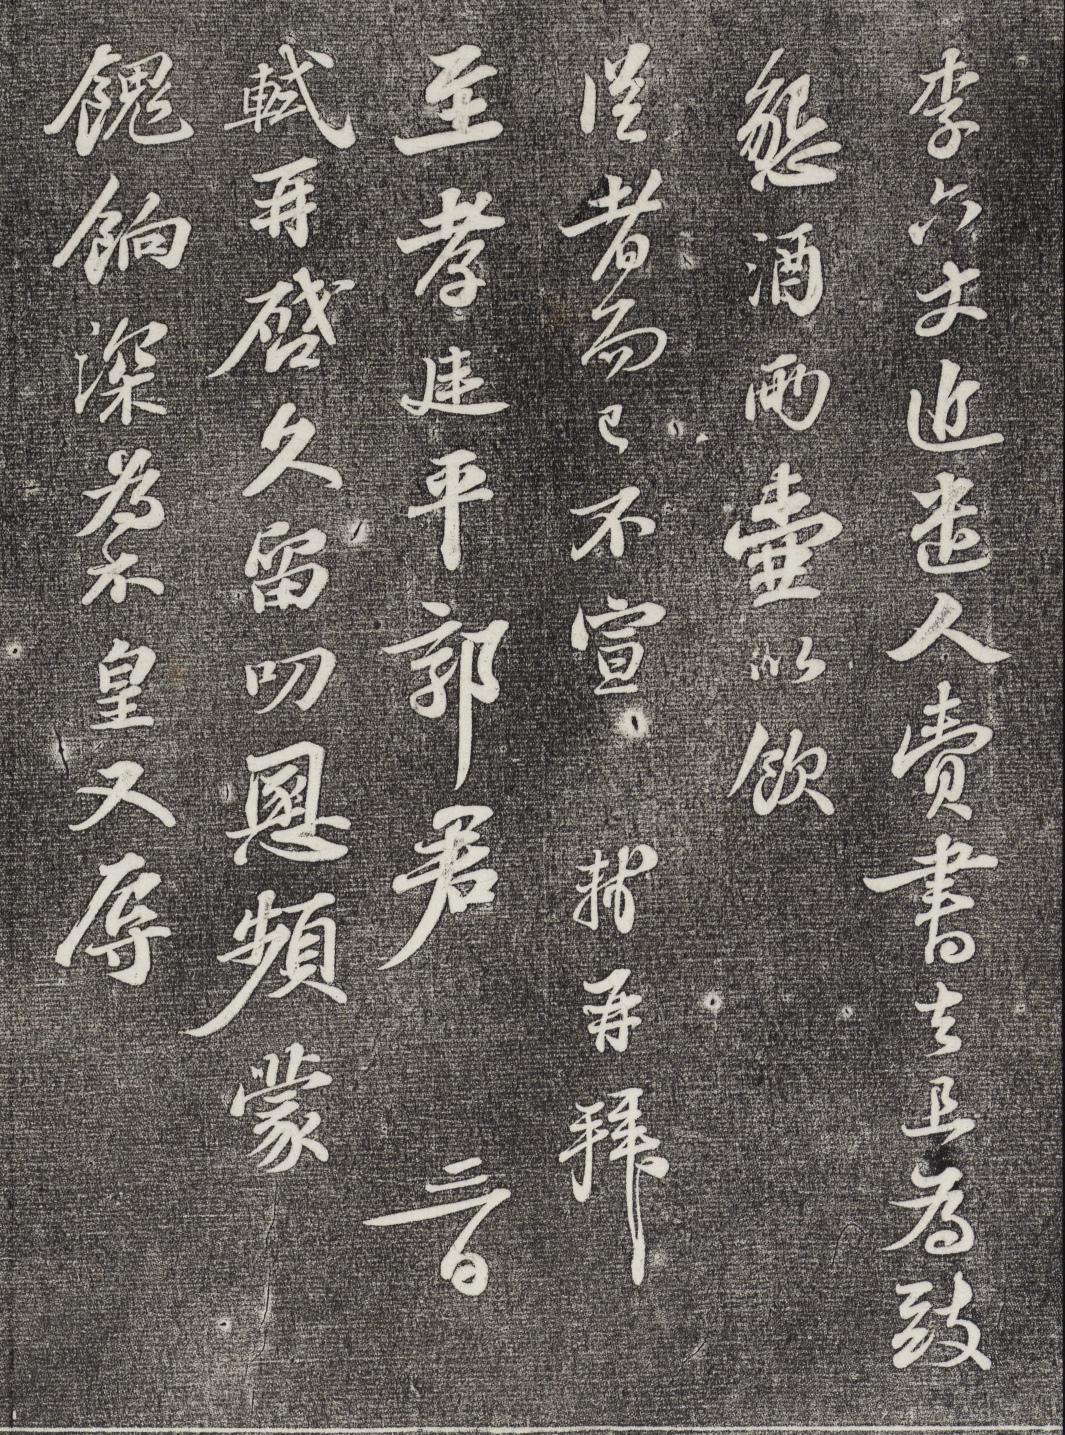 李六丈近遣人賫書去且為致
懇酒兩壺以飲
從者而已不宣 再拜
至孝廷平郭君 三日
軾再啓久留叨恩頻蒙
餽餉深為不皇又辱